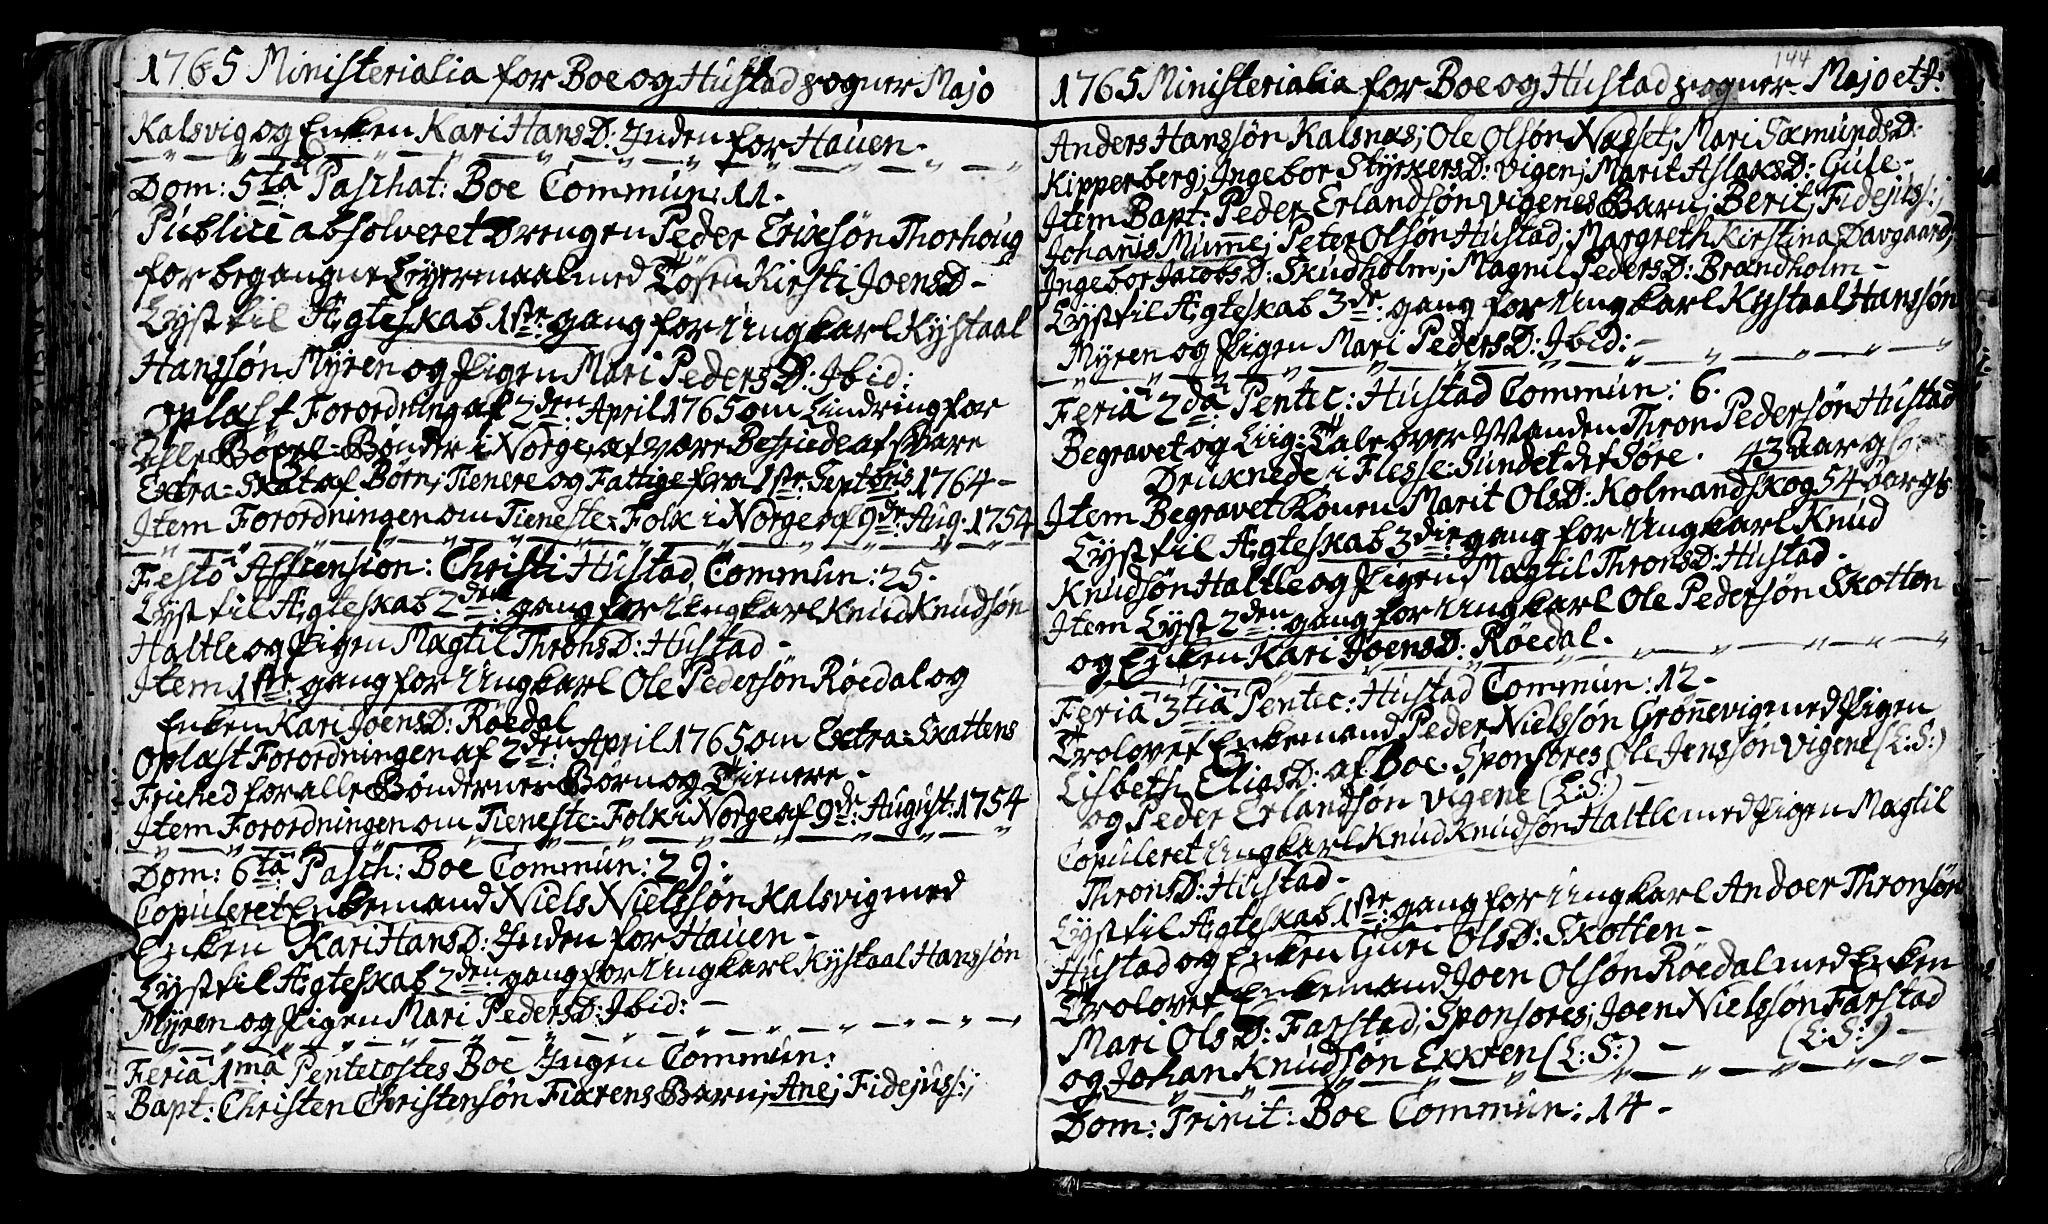 1765 Ministerialia for Boe og Hustad sogner Majo
Kalsvig og Enken Kari HansD: Inden for Hauen -
Dom: 5ta Paschat: Boe Commun: 11 -
Publicè absolveret Drengen Peder Erixsøn Thorhoug
for begangne Leyermaal med Tøsen Kirsti JoensD -
Lyst til Ægteskab 1ste gang for Ungkarl Kystaal
Hanssøn Myren og Pigen Mari PedersD: Ibid:
Oplæst Forordning af 2den April 1765 om Lindring for
Bønder i Norge, af være Befriede af svare
Extra=Skat af Børn, Tienere og Fattige fra 1ste Septbris 1764 -
Item Forordningen om Tieneste=Folk i Norge af 9de Aug. 1754
Festô Ascension: Christi Hustad Commun: 25.
Lyst til Ægteskab 2den gang for Ungkarl Knud Knudsøn
Haltle og Pigen Magtil ThronsD: Hustad -
Item 1ste gang for Ungkarl Ole Pedersøn Røedal og
Enken Kari JoensD: Røedal
Oplæst Forordningen af 2den April 1765 om Extra=Skattens
Friehed for alle Bøndernes Børn og Tienere -
Item Forordningen om Tieneste=Folk i Norge af 9de August: 1754
Dom: 6ta Pasch: Boe Commun: 29.
Copuleret Enkemand Niels Nielssøn Kalsvig med
Enken Kari HansD: Inden for Hauen -
Lyst til Ægteskab 2den gang for Ungkarl Kystaal Hanssøn
Myren og Pigen Mari PedersD: Ibid: -
Feriâ 1mâ Pentecostes Boe Ingen Commun:
Bapt: Christen Christensøn Fiærens Barn; Ane; Fidejuss:;
144
1765 Ministerialia for Boe og Hustad sogner - Majo et J:
Anders Hanssøn Kalsnæs; Ole Olsøn Næsset; Mari SæmundsD:
Kipperberg; Ingebor StyrkersD: Vigen; Marit AslaksD: Gule -
Item Bapt: Peder Erlandsøn Vigenes Barn; Berit; Fidejuss:;
Johanis Mimme; Peter Olsøn Hustad; Margreth Kirstina Davgaard;
Ingebor JacobsD: Skudholm; Magnil PedersD: Brandholm -
Lyst til Ægteskab 3de gang for Ungkarl Kystaal Hanssøn
Myren og Pigen Mari PedersD: Ibid: -
Feriâ 2dâ Pentec: Hustad Commun: 6.
Begravet og Liig=Tale over Manden Thron Pedersøn Hustad
Druknede i Flesse=Sundet det Søre. 43 Aar gl:
Item Begravet Konen Marit OlsD: Kolmandskog 54 Aar gl:
Lyst til Ægteskab 3die gang for Ungkarl Knud
Knudsøn Haltle og Pigen Magtil ThronsD: Hustad -
Item Lyst 2den gang for Ungkarl Ole Pedersøn Skotten
og Enken Kari JoensD: Røedal.
Feriâ 3tiâ Pentec: Hustad Commun: 12 -
Trolovet Enkemand Peder Nielssøn Grønnevig med Pigen
Lisbeth EliasD: af Boe. Sponsores Ole Jenssøn Vigene (L:S:)
og Peder Erlandsøn Vigene (L:S:) -
Copuleret Ungkarl Knud Knudsøn Haltle med Pigen Magtil
ThronsD: Hustad -
Lyst til Ægteskab 1ste gang for Ungkarl Andoer Thronsøn
Hustad og Enken Guri OlsD: Skotten -
Trolovet Enkemand Joen Olsøn Røedal med Enken
Mari OlsD: Farstad; Sponsores; Joen Nielssøn Farstad
og Johan Knudsøn Exren (L:S:) - (L:S:) -
Dom: Trinit: Boe Commun: 14 -